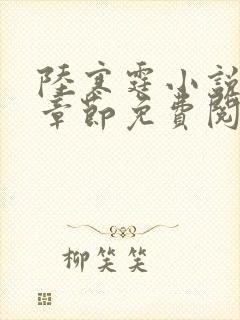 陸寒霆小說
章節免費閱
柳笑笑